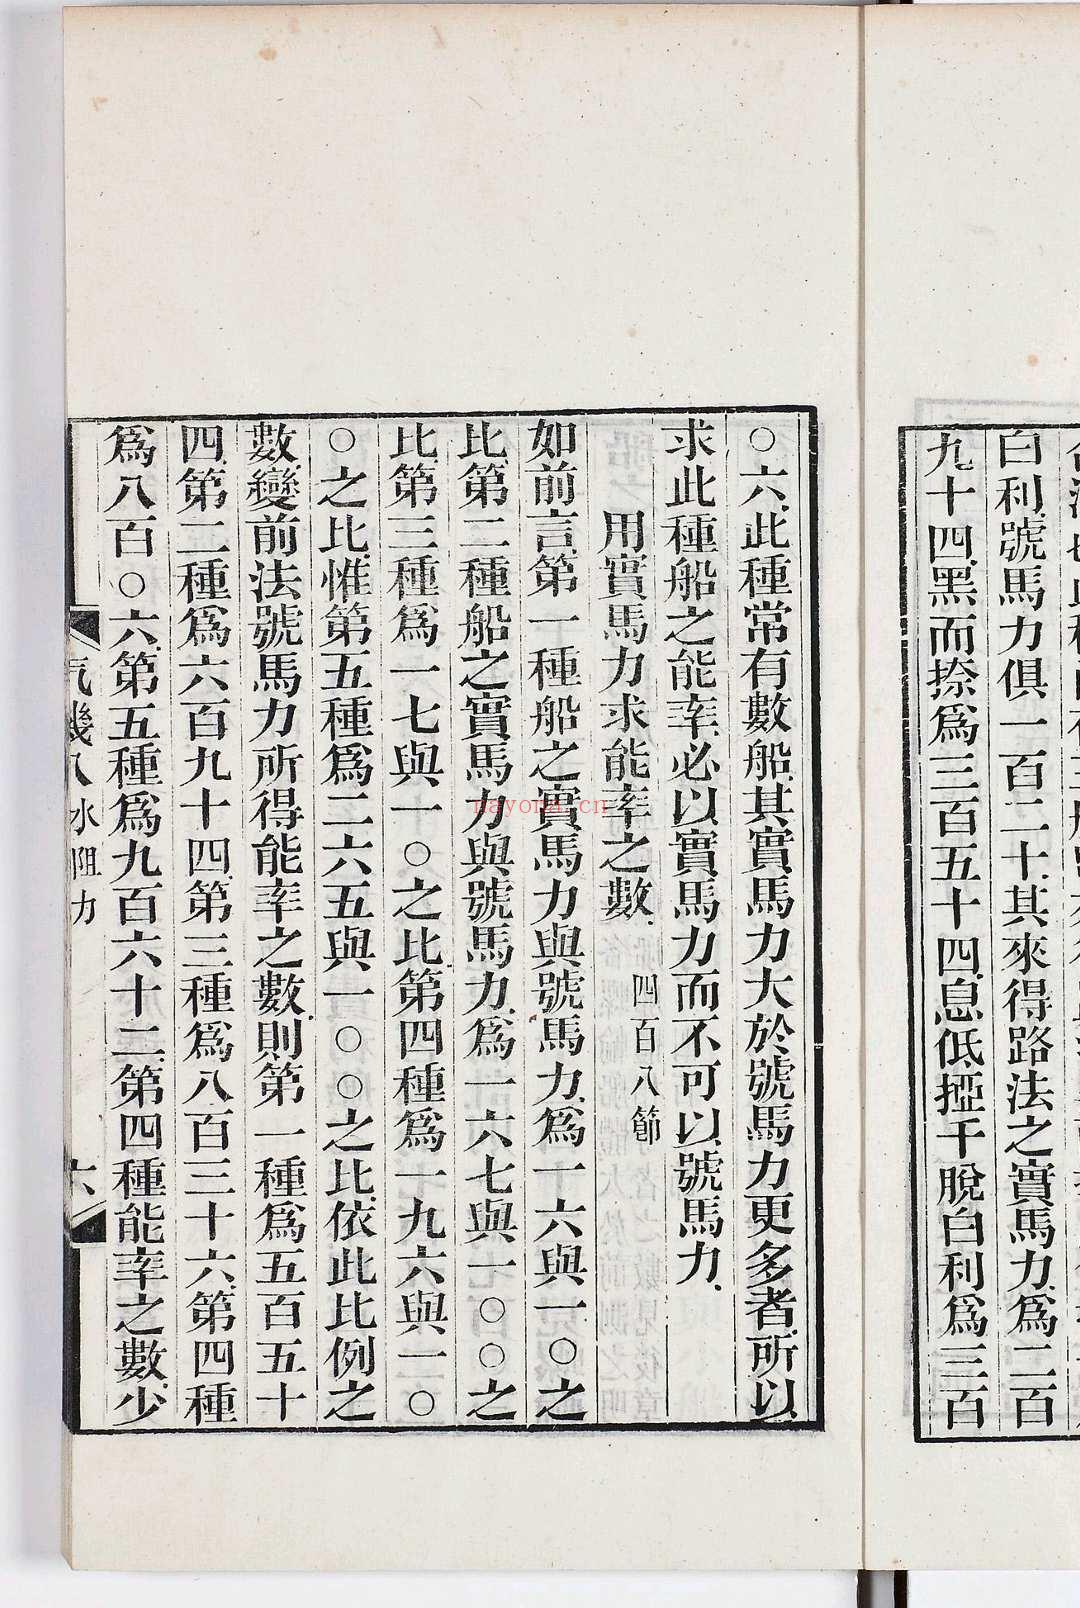 白利號馬力俱一百二十其來得路法之實馬力爲二百
九十四黑而捺爲三百五十四息低掗千脫白利爲三百
○六此種常有數船其實馬力大於號馬力更多者所以
求此種船之能率必以實馬力而不可以號馬力
用實馬力求能率之數 四百八節
如前言第一種船之實馬力與號馬力爲一六與一○之
比第二種船之實馬力與號馬力爲一六七與一○○之
比第三種爲一七與一○之比第四種爲一九六與一○
○之比惟第五種爲二六五與一○○之比依此比例之
數變前法號馬力所得能率之數則第一種爲五百五十
四第二種爲六百九十四第三種爲八百三十六第四種
爲八百○六第五種爲九百六十二第四種能率之數少
汽機八 水阻力 六
nayona.cn